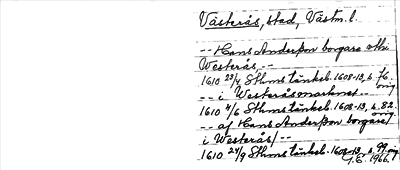 Västerås, stad, Västm.l.
-- Hans Anderßon borgare uthi
Westerås, --
1610 23/4 Sthms tänkeb. 1608-13, s. 76.
orig
-- i Westeråsmarknet --
1610 4/6 Sthms tänkeb. 1608-13, s. 82.
orig
-- af Hans Anderßon borgare/
i Westerås/ --
1610 24/9 Sthms tänkeb. 1608-13, s. 99. orig
G.E. 1966.